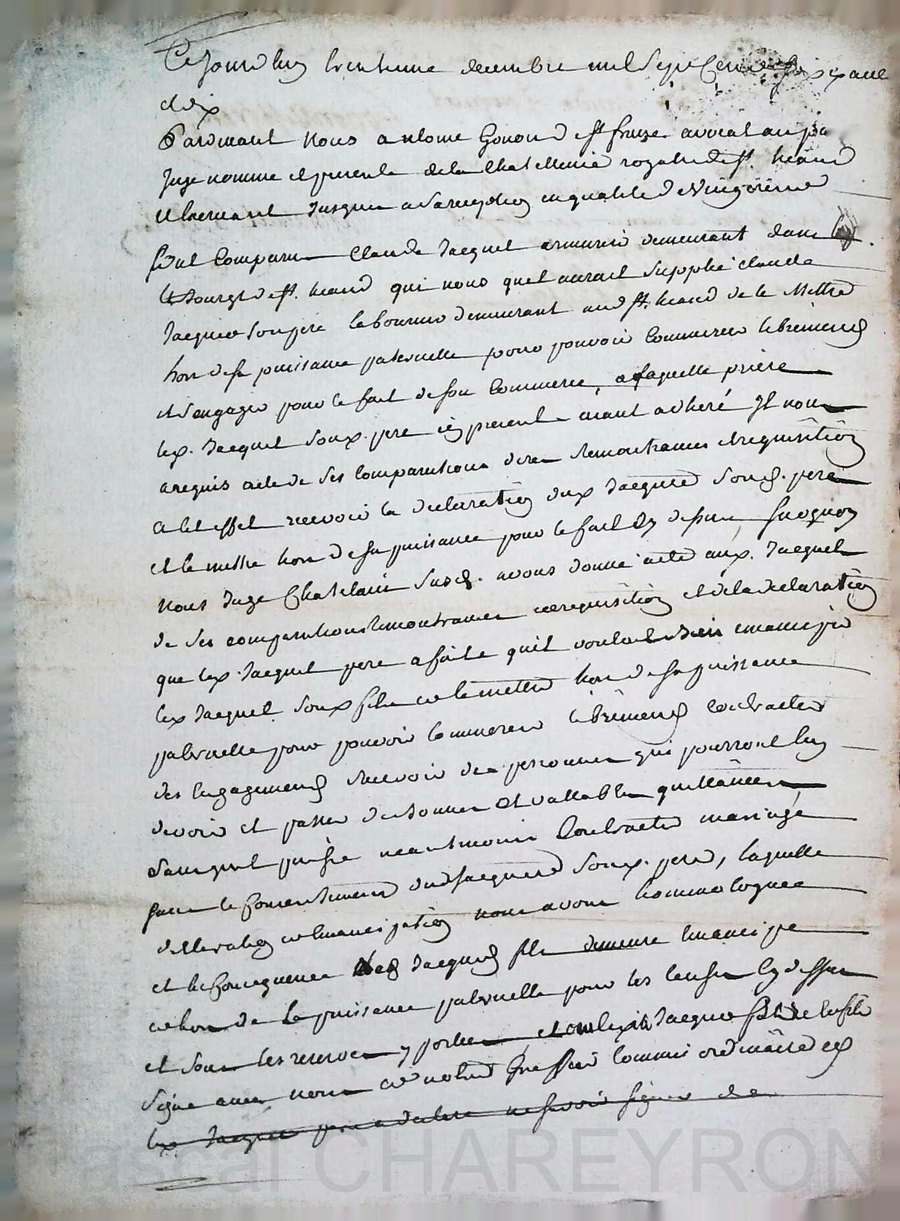 Ce Jourdhuy trente une decembre mil Sept Cent Soixante
dix
Pardevant Nous antoine Gonon de st fraize avocat au
Juge nomme et presente de la Chatellenie royalle de st. heand
et exercant Jusques a
fut Comparu Claude Jacquet armurier demeurant dans le
le Bourg de st. heand qui nous quel aurait Supplié Claude
Jacquet Son pere laboureur demeurant aud st. heand de le Mettre
hors de sa puissance paternelle pour pouvoir Commercer librement
et s'engager pour le fait de son Commerce, a laquelle priere
led. Jacquet Sond. pere icy present aiant adheré Il nous
a requis acte de Ses Comparutions dires remontrances et requisition
a Cet effet recevoir la declaration dud Jacquet Sond. pere
et le mettre hors de sa puissance pour le fait
nous Juge Chatelain Susd. avons donné acte aud. Jacquet
de Ses comparutions remontrances et requisition et de la declaration
que led. Jacquet pere a faite quil vouloit bien emanciper
led Jacquet Sond fils et le mettre hors de sa puissance
paternelle pour pouvoir Commercer librement Contracter
des Engagements recevoir des personnes qui pourront luy
devoir et passer de bonnes et vallables quittances,
Sans quil puisse neantmoins Contracter mariage
sans le Consentement dud Jacquet Sond. pere, laquelle
declaration et emancipation nous avons hommologuée
et en Consequence led Jacquet fils demeure emancipé
et hors de la puissance paternelle pour les causes Cy dessus
et sous les reserves y portées, et ont lesd Jacquet pere et le fils
Signé avec nous et notre Greffier Commis ordinaire
led Jacquet pere a declaré ne savoir signer de
Pascal CHAREYRON